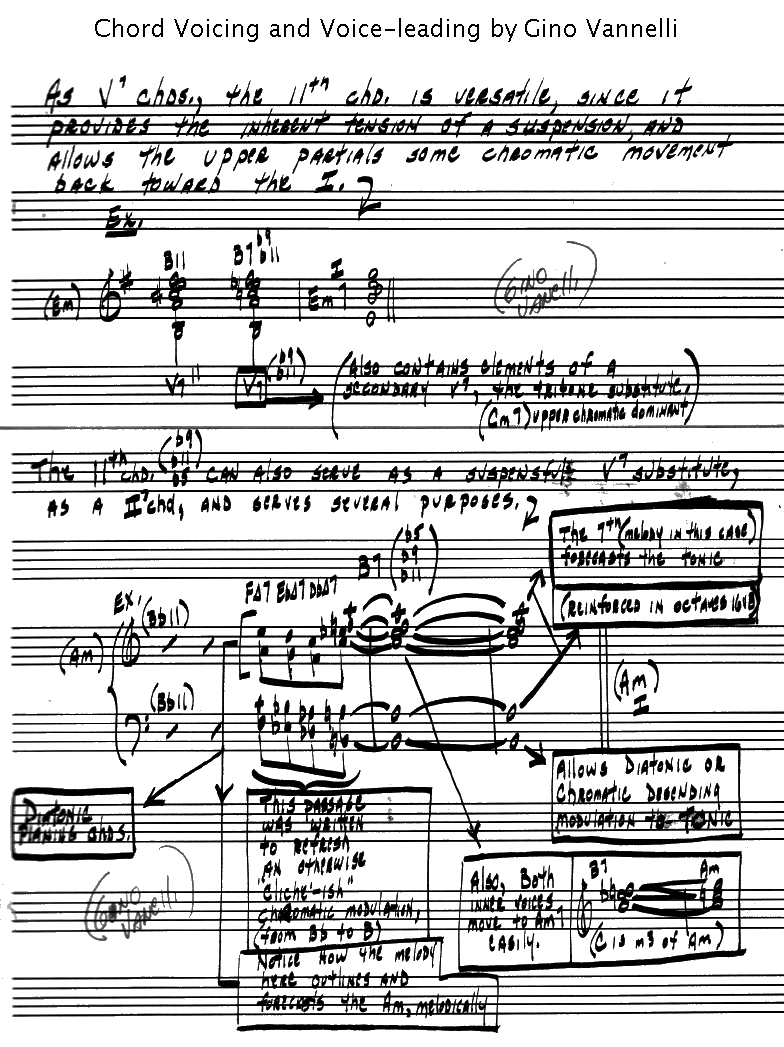 Chord Voicing and Voice-leading by Gino Vannelli
As V7 chds., the 11th chd. is versatile, since it
provides the inherent tension of a suspension, and
allows the upper partials some chromatic movement
back toward the I.
Ex.
B11 B7 b9 b11
I
(Em) Em7
(GINO VANELLI)
V7 11 V7 (b9 b11)
(Also contains elements of a
secondary V7, the tritone substitute.
(Cm7) upper chromatic dominant)
The 11th chd. (b9 b11 b5) can also serve as a suspensful V7 substitute,
as a II7 chd, and serves several purposes.
The 7th (melody in this case)
forecasts the tonic
(reinforced in octaves
B7 (b5 b9 b11)
F∆7 Eb∆7 Db∆7
Ex.
(Bb11)
(Am)
(Bb11)
(Am)
I
Diatonic
planing chds.
This passage
was written
to refresh
an otherwise
"cliche'-ish"
chromatic modulation,
(from Bb to B)
Notice how the melody
here outlines and
forecasts the Am, melodically
Allows Diatonic or
chromatic descending
modulation to tonic
Also, Both
inner voices
move to Am7
easily.
B7 Am
(C is m3 of Am)
(GINO VANELLI)